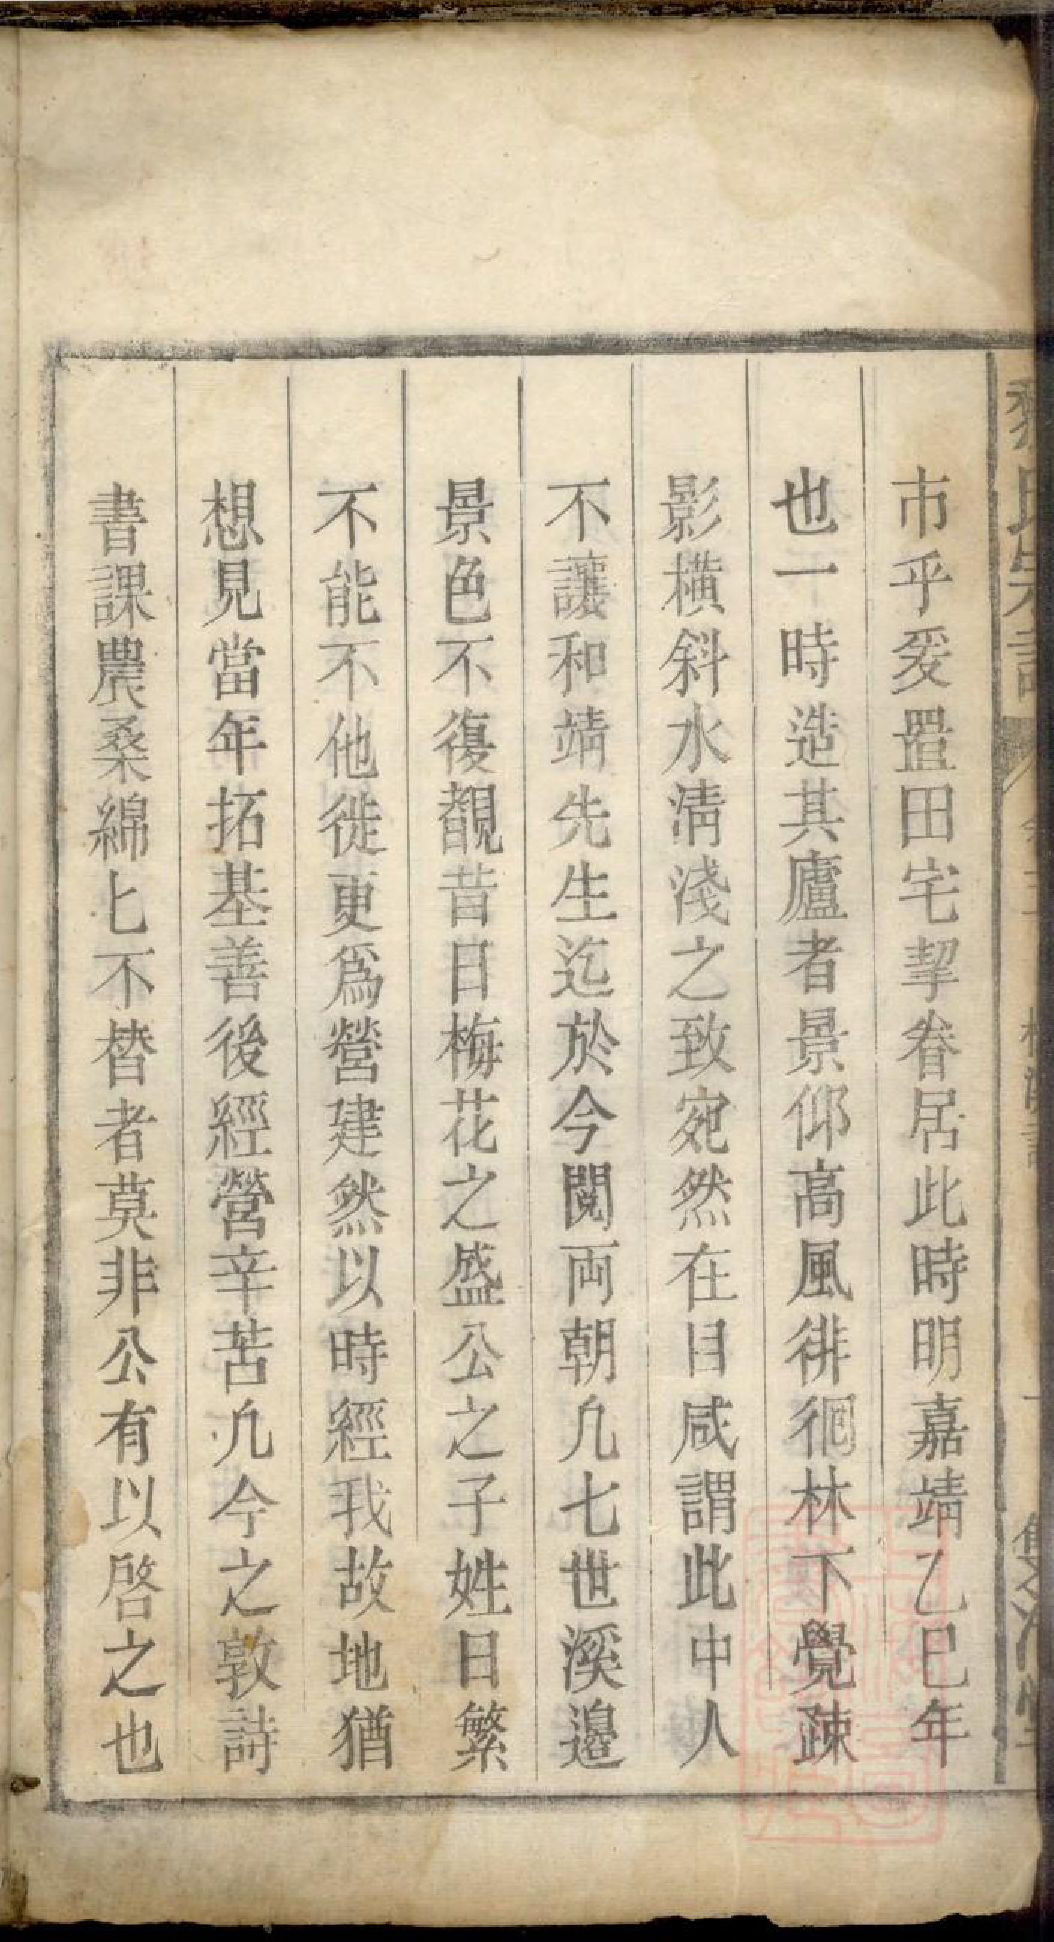 市乎爰置田宅挈眷居此時明嘉靖乙巳年
也一時造其廬者景仰高風徘徊林下覺疎
影橫斜水淸淺之致宛然在目咸謂此中人
不讓和靖先生迄於今閱両朝凢七世溪邉
景色不復覩昔日梅花之盛公之子姓日繁
不能不他徙更爲營建然以時經我故地猶
想見當年拓基善後經營辛苦凢今之敦詩
書課農桑綿匕不替者莫非公有以啓之也